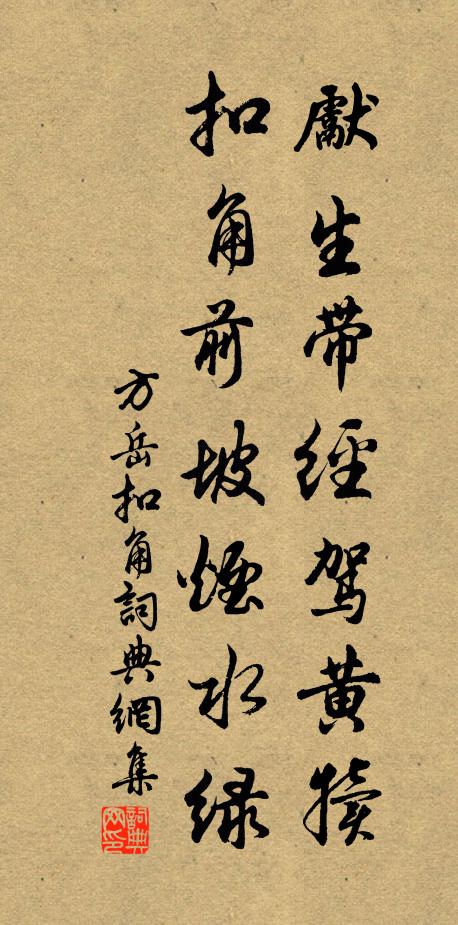 獻生帶經駕黃犢
扣角前坡煙水綠
方岳扣角詞典網集
詞典網印